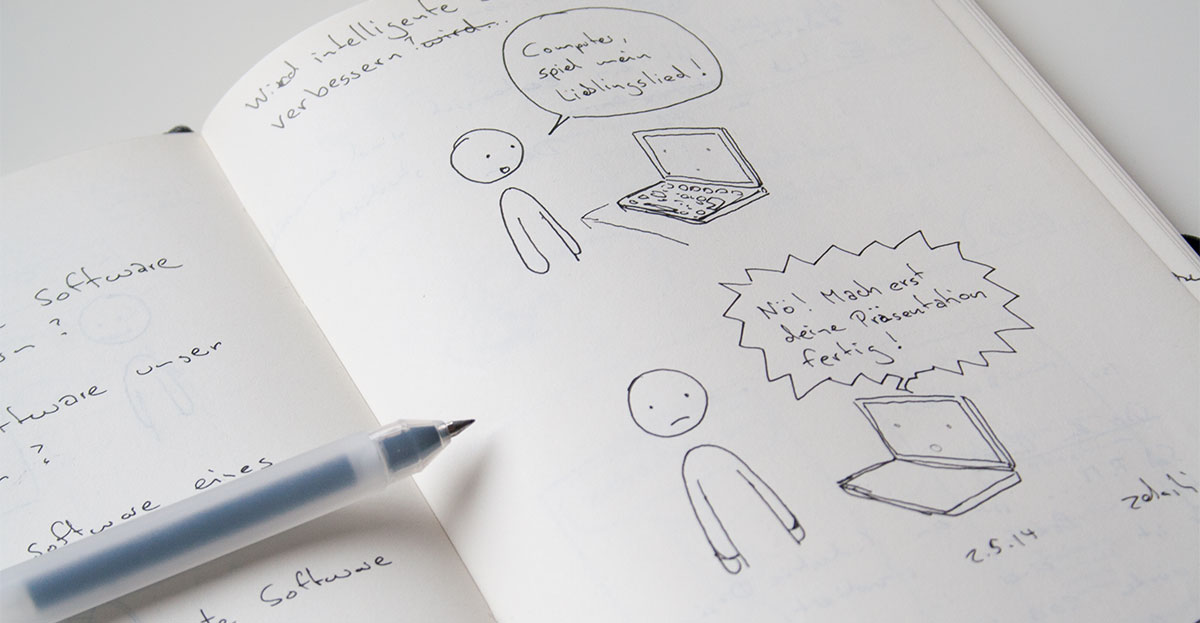 Software
?
software unser
?
Software eines
Software
Wird intelligente
verbessern? wird...
Computer,
spiel mein
Lieblingslied!
Nö! Mach erst
deine Präsentation
fertig!
2.5.14